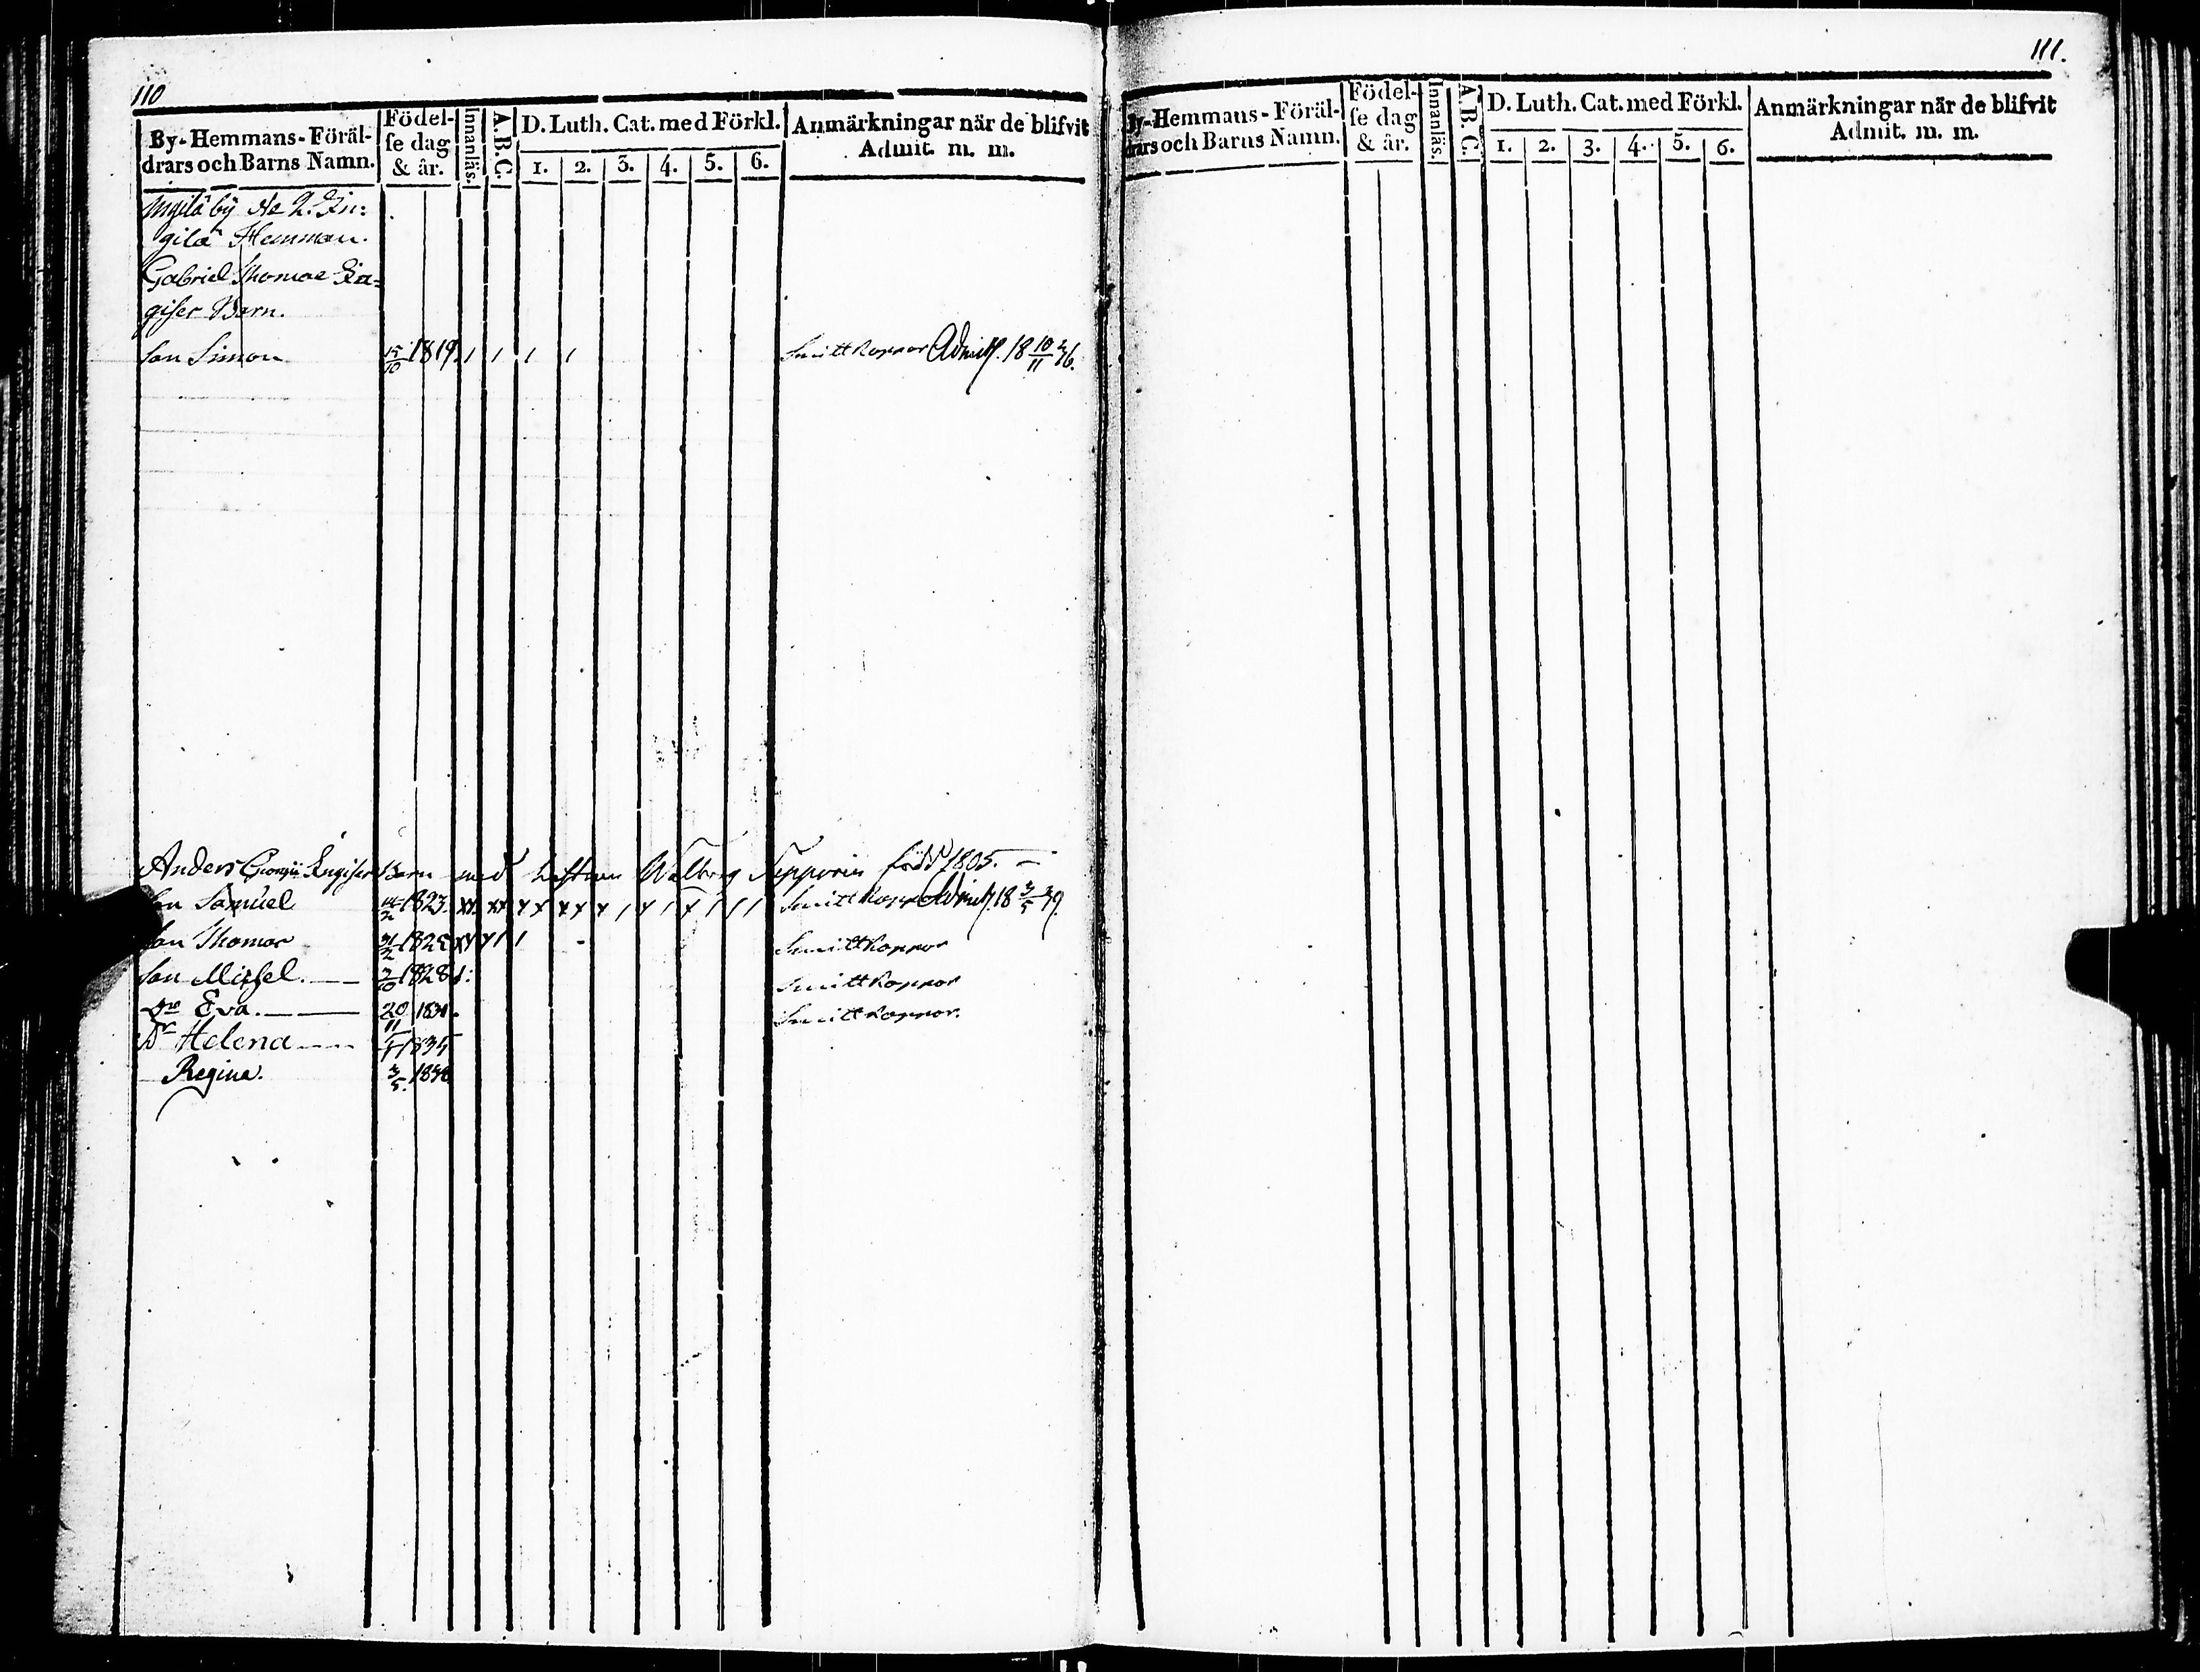 110
By-Hemmans-Föräl-
drars och Barns Namn.
Födel-
se dag
& år.
Innanläs.
A.B.C.
D. Luth. Cat. med Förkl.
1. 2. 3. 4. 5. 6.
Anmärkningar när de blifvit
Admit. m. m.
Ingilä by No 2. In:
gilä Hemman.
Gabriel Thomae In=
giser Barn.
Son Simon 15/10 1819. / / / / Smittkoppor Admitt. 18 10/11
Anders Georgii Ingiser Barn med hustrun Walborg född 1805. —
Son Samuel 1823. xx xx x x x x x / x / x / / / Smittkopp Admitt. 18 3/5 39.
Son Thomas 1825 xx x / / Smittkoppor
Son Michel. — 3/10 1828 Smittkoppor
Dr Eva. — 20/11 1831. Smittkoppor.
Dr Helena — 1835
Regina. 3/5. 1838
111.
By-Hemmans-Föräl-
drars och Barns Namn.
Födel-
se dag
& år.
Innanläs.
A.B.C.
D. Luth. Cat. med Förkl.
1. 2. 3. 4. 5. 6.
Anmärkningar när de blifvit
Admit. m. m.